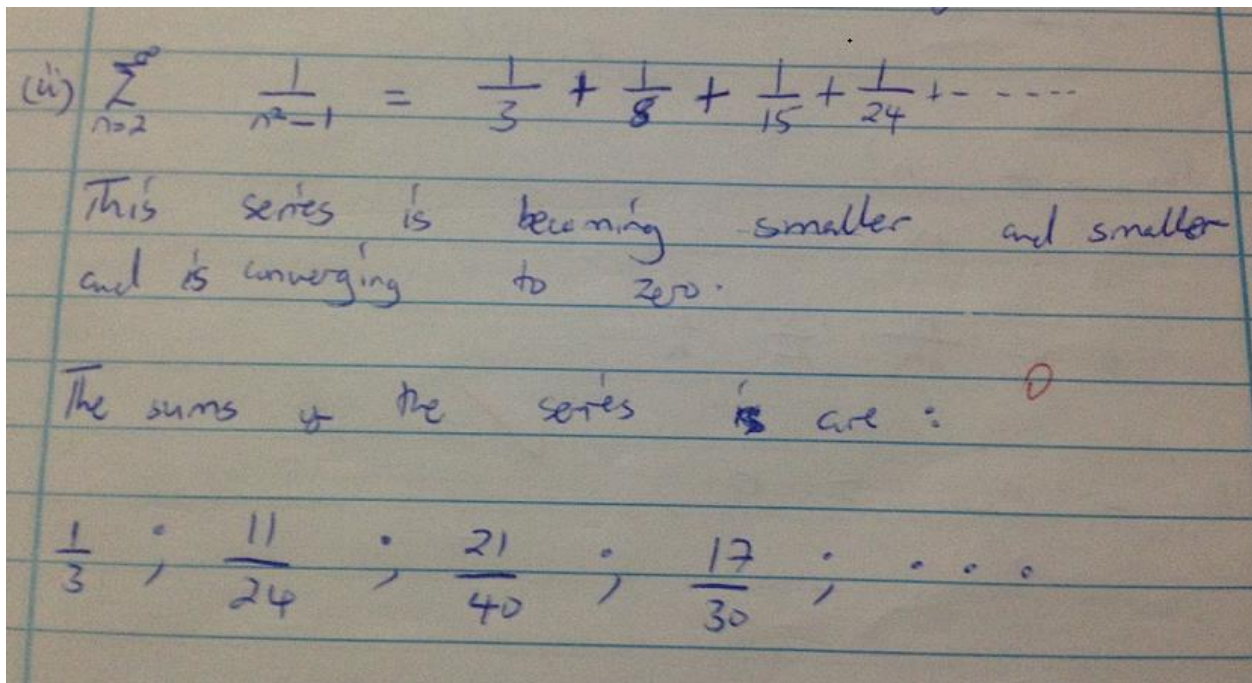 (ii) ∑_{n=2}^{∞} 1/(n²-1) = 1/3 + 1/8 + 1/15 + 1/24 + - - - - - -
This series is becoming smaller and smaller
and is converging to zero.
0
The sums of the series is are :
1/3 ; 11/24 ; 21/40 ; 17/30 ; . . .